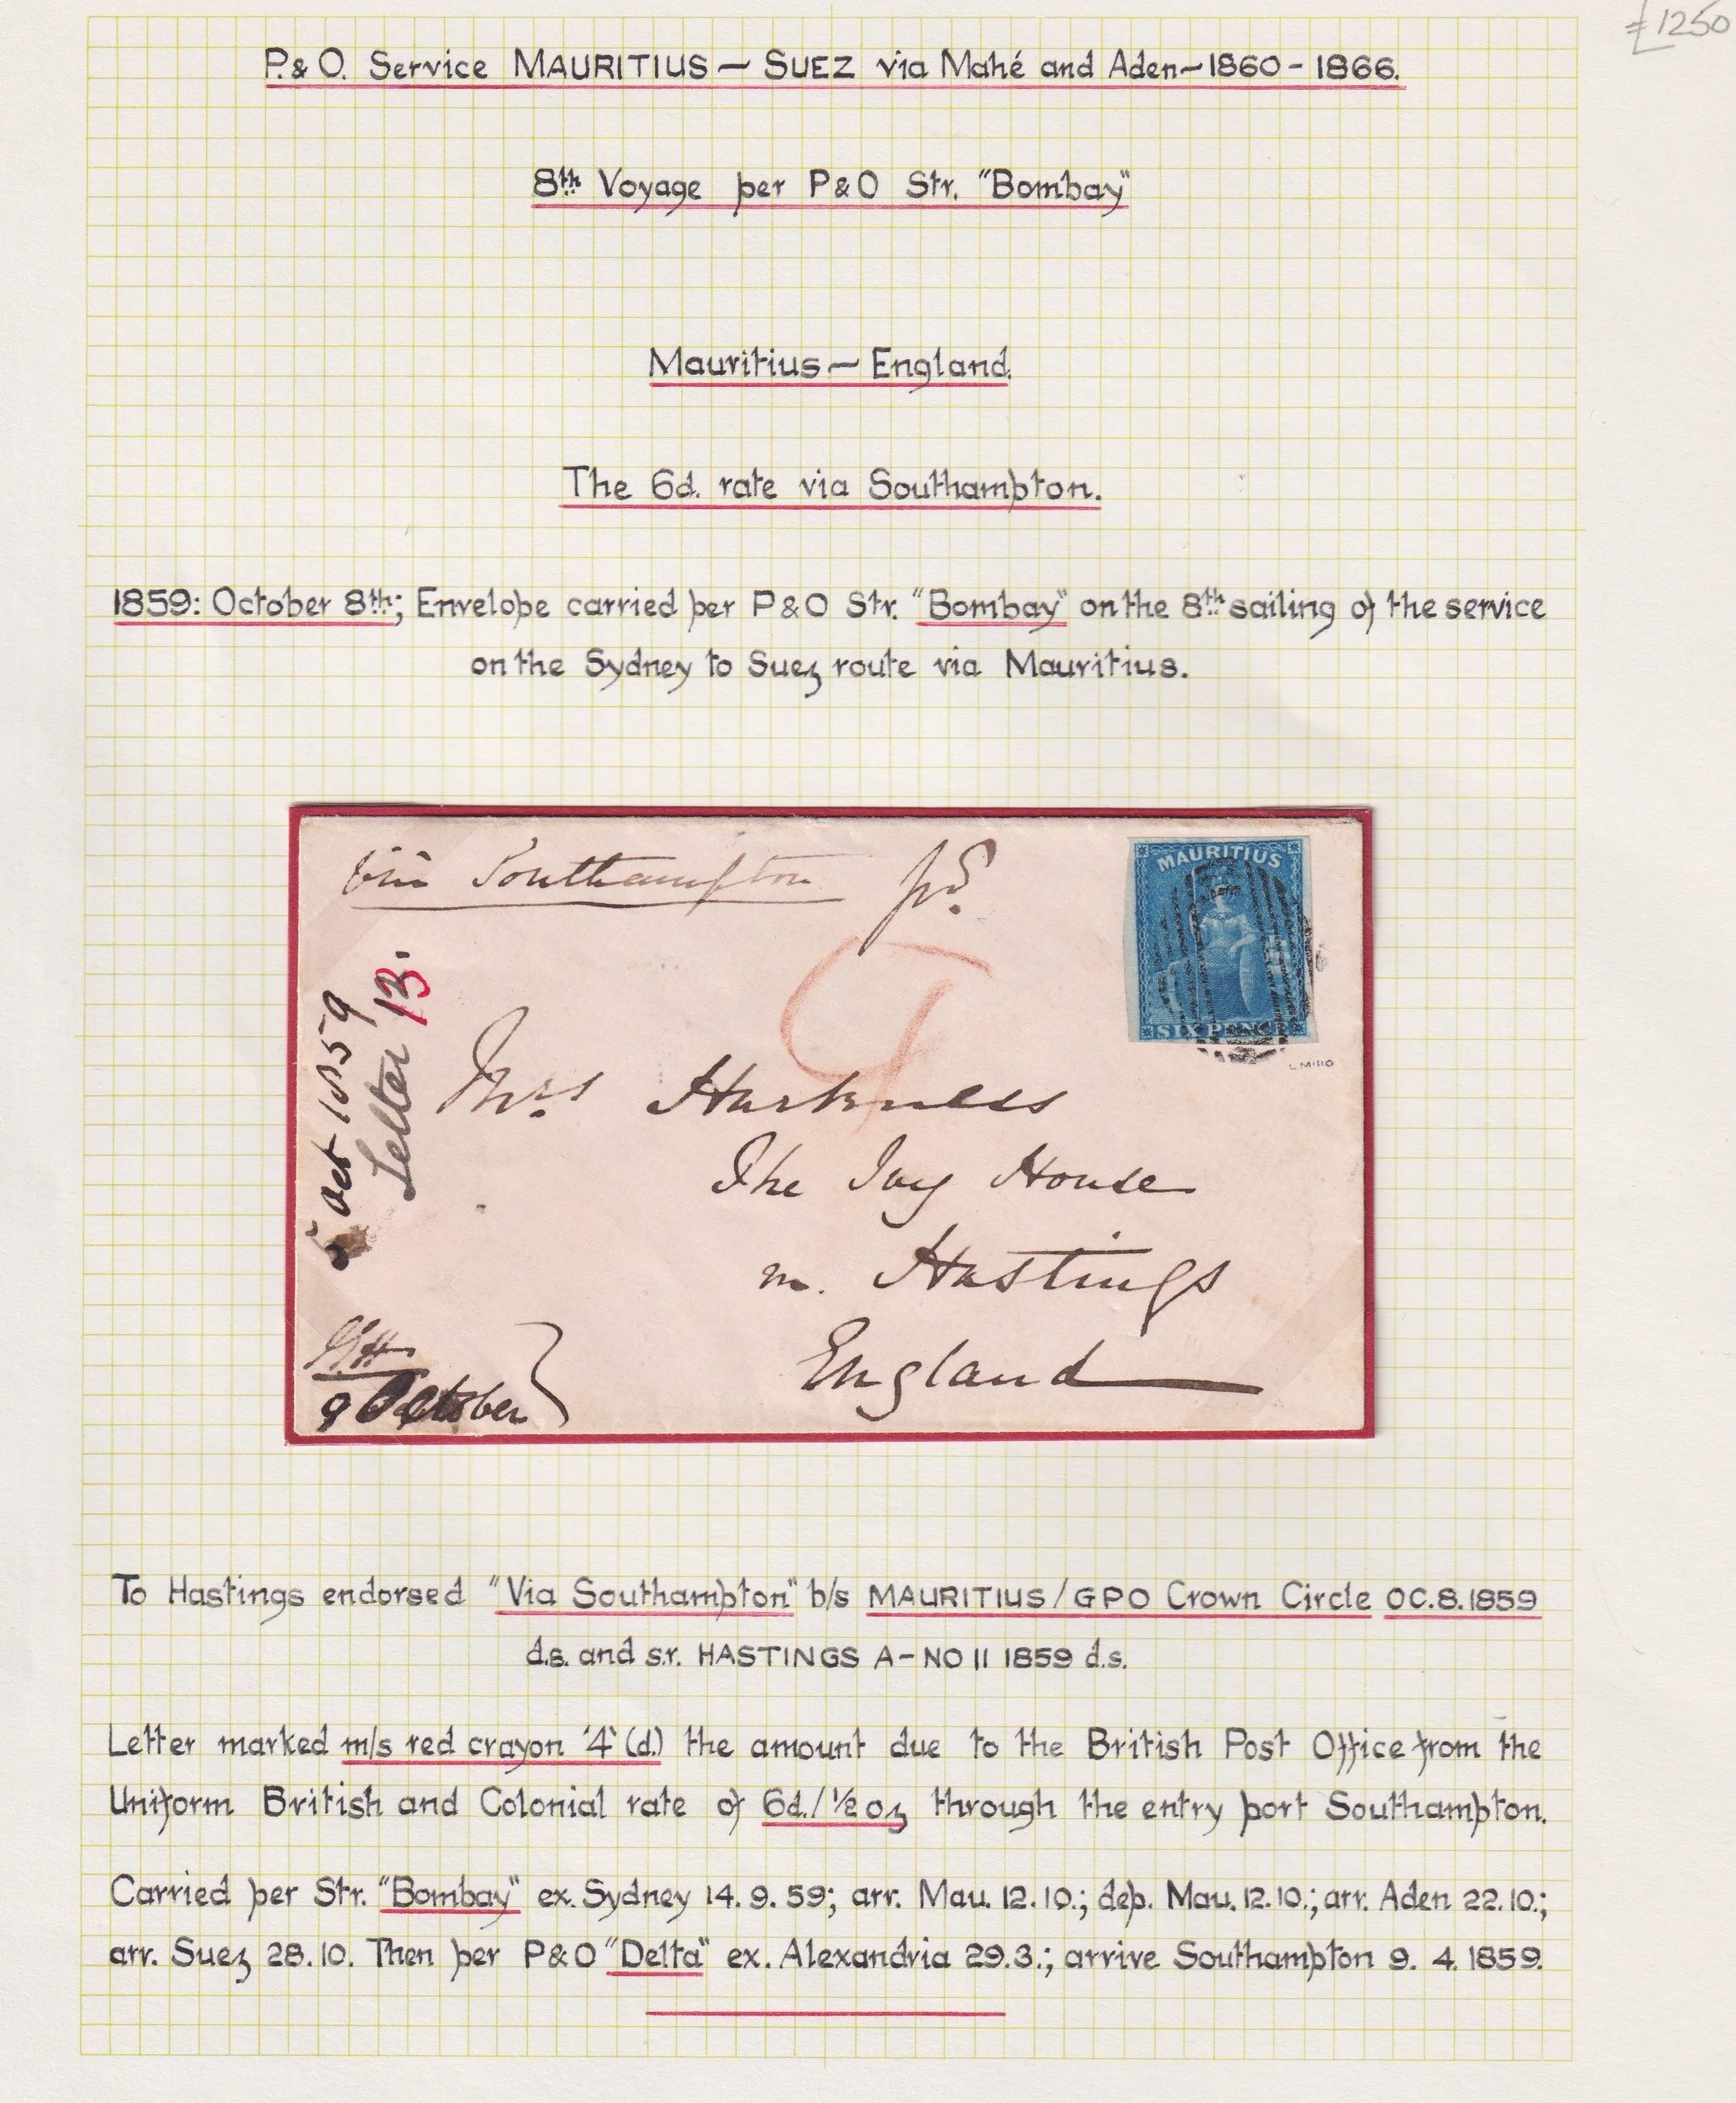 £1250
P.&O. Service MAURITIUS — SUEZ via Mahé and Aden — 1860 - 1866.
8th Voyage per P&O Str. "Bombay"
Mauritius — England.
The 6d. rate via Southampton.
1859: October 8th; Envelope carried per P&O Str. "Bombay" on the 8th sailing of the service
on the Sydney to Suez route via Mauritius.
Via Southampton pd.
MAURITIUS
SIX PENCE
L.MIRO
4
5 Oct 1859
Letter 13.
Mrs Harkness
The Ivy House
Hastings
England
9 October
To Hastings endorsed "Via Southampton" b/s MAURITIUS/GPO Crown Circle OC.8.1859
d.s. and s.r. HASTINGS A-NO 11 1859 d.s.
Letter marked m/s red crayon '4' (d.) the amount due to the British Post Office from the
Uniform British and Colonial rate of 6d./½ oz through the entry port Southampton.
Carried per Str. "Bombay" ex. Sydney 14. 9. 59; arr. Mau. 12.10.; dep. Mau. 12.10.; arr. Aden 22.10.;
arr. Suez 28.10. Then per P&O "Delta" ex. Alexandria 29.3.; arrive Southampton 9. 4. 1859.